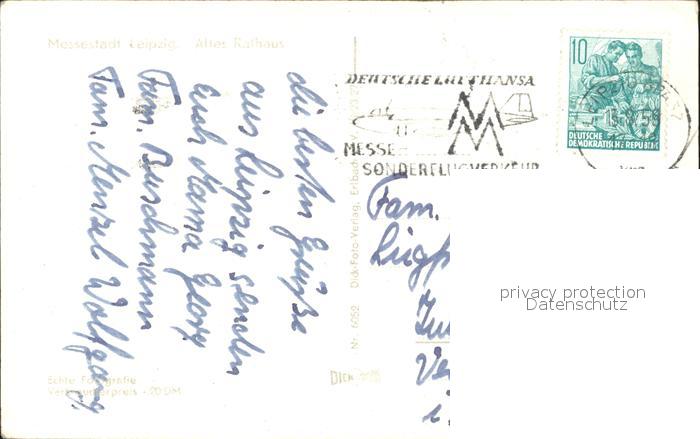 Messestadt Leipzig. Altes Rathaus
die besten Grüße
aus Leipzig senden
auch Mama Glory
Fam. Buschmann
Fam. Menzel Wolfgang.
Echte Fotografie
Verbraucherpreis -.20 DM
Dick-Foto-Verlag, Erlbach i. V.
Nr. 6052
DICK
DEUTSCHE LUFTHANSA
MM
MESSE-
SONDERFLUGVERKEHR
10
DEUTSCHE
DEMOKRATISCHE REPUBLIK
LEIPZIG
Fam.
privacy protection
Datenschutz